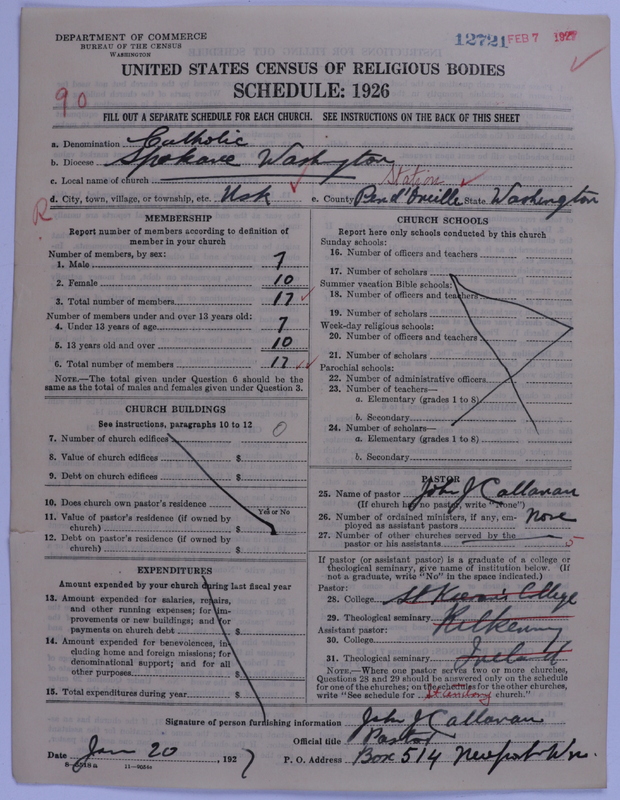 DEPARTMENT OF COMMERCE
BUREAU OF THE CENSUS
WASHINGTON
12721 FEB 7 1927
UNITED STATES CENSUS OF RELIGIOUS BODIES
SCHEDULE: 1926
90
FILL OUT A SEPARATE SCHEDULE FOR EACH CHURCH. SEE INSTRUCTIONS ON THE BACK OF THIS SHEET
a. Denomination Catholic
b. Diocese Spokane Washington
c. Local name of church Station
d. City, town, village, or township, etc. Usk e. County Pend'Oreille State. Washington
R
MEMBERSHIP
Report number of members according to definition of
member in your church
Number of members, by sex:
1. Male 7
2. Female 10
3. Total number of members 17
Number of members under and over 13 years old:
4. Under 13 years of age 7
5. 13 years old and over 10
6. Total number of members 17
NOTE.—The total given under Question 6 should be the
same as the total of males and females given under Question 3.
CHURCH BUILDINGS
See instructions, paragraphs 10 to 12
7. Number of church edifices 0
8. Value of church edifices $
9. Debt on church edifices $
10. Does church own pastor's residence
Yes or No
11. Value of pastor's residence (if owned by
church) $
12. Debt on pastor's residence (if owned by
church) $
EXPENDITURES
Amount expended by your church during last fiscal year
13. Amount expended for salaries, repairs,
and other running expenses; for im-
provements or new buildings; and for
payments on church debt $
14. Amount expended for benevolences, in-
cluding home and foreign missions; for
denominational support; and for all
other purposes $
15. Total expenditures during year $
CHURCH SCHOOLS
Report here only schools conducted by this church
Sunday schools:
16. Number of officers and teachers
17. Number of scholars
Summer vacation Bible schools:
18. Number of officers and teachers
19. Number of scholars
Week-day religious schools:
20. Number of officers and teachers
21. Number of scholars
Parochial schools:
22. Number of administrative officers
23. Number of teachers—
a. Elementary (grades 1 to 8)
b. Secondary
24. Number of scholars—
a. Elementary (grades 1 to 8)
b. Secondary
PASTOR
25. Name of pastor John J Callanan
(If church has no pastor, write "None")
26. Number of ordained ministers, if any, em-
ployed as assistant pastors None
27. Number of other churches served by the
pastor or his assistants 5
If pastor (or assistant pastor) is a graduate of a college or
theological seminary, give name of institution below. (If
not a graduate, write "No" in the space indicated.)
Pastor:
28. College St Kieran's College
29. Theological seminary Kilkenny
Assistant pastor:
30. College
31. Theological seminary Ireland
NOTE.—Where one pastor serves two or more churches,
Questions 28 and 29 should be answered only on the schedule
for one of the churches; on the schedules for the other churches,
write "See schedule for church."
Signature of person furnishing information John J Callanan
Official title Pastor
Date Jan 20, 1927 P. O. Address Box 514 Newport Wn.
11—9554a